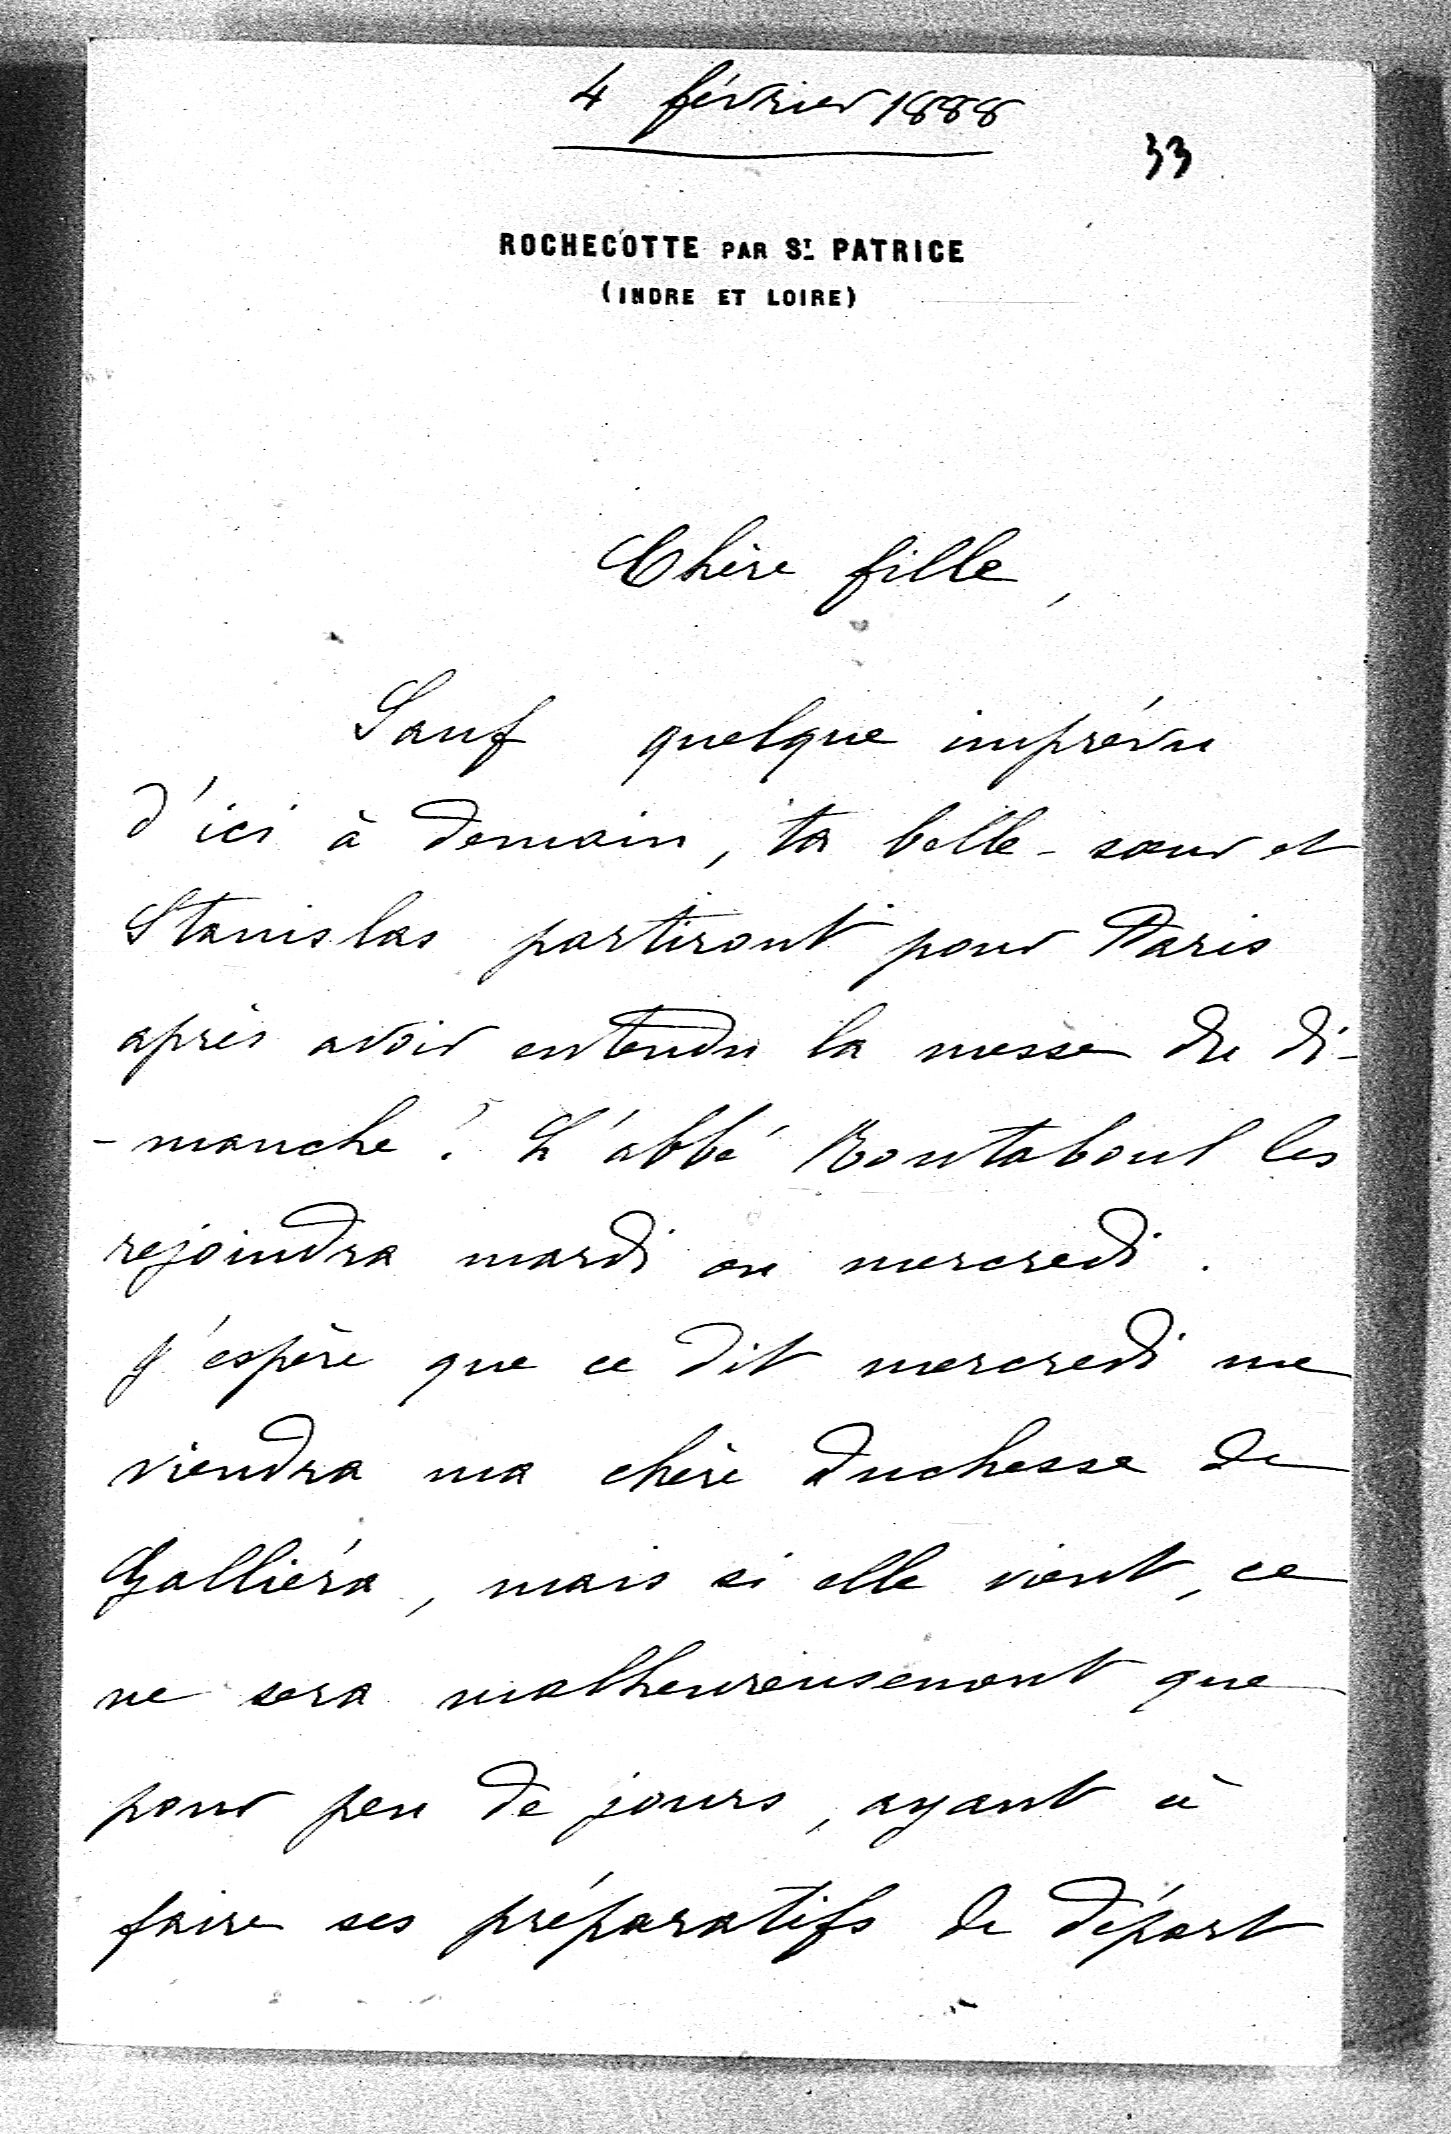 4 février 1888
33
ROCHECOTTE PAR ST PATRICE
(INDRE ET LOIRE)
Chère fille,
Sauf quelque imprévu
d'ici à demain, ta belle-sœur et
Stanislas partiront pour Paris
après avoir entendu la messe du di-
-manche. L'abbé Routaboul les
rejoindra mardi ou mercredi.
J'espère que ce dit mercredi me
viendra ma chère duchesse de
Galliéra, mais si elle vient, ce
ne sera malheureusement que
pour peu de jours, ayant à
faire ses préparatifs de départ